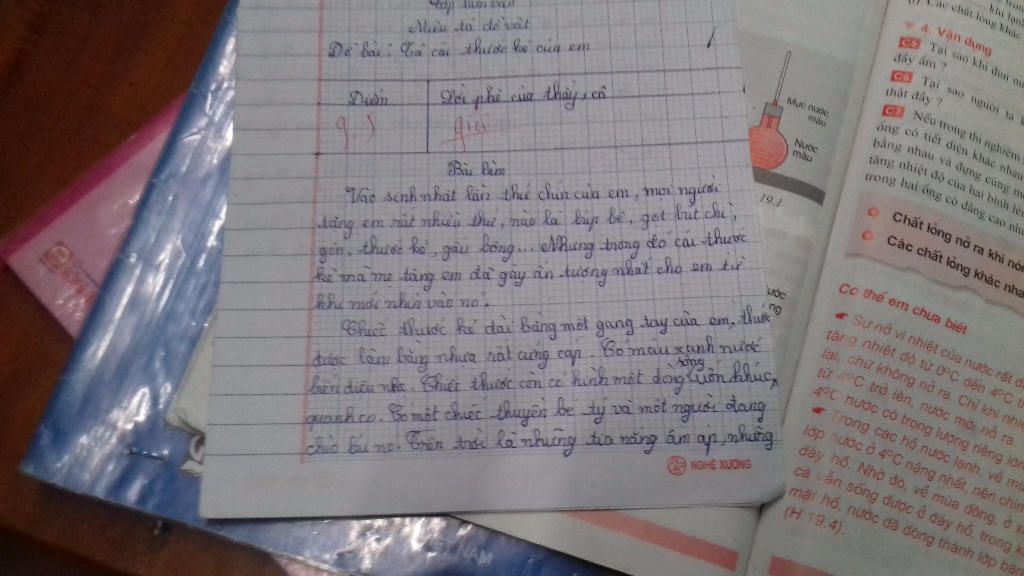 Tập làm văn
Miêu tả đồ vật
Đề bài: Tả cái thước kẻ của em
Điểm
Lời phê của thầy, cô
giỏi
Bài làm
Vào sinh nhật lần thứ chín của em, mọi người
tặng em rất nhiều thứ, nào là búp bê, gọt bút chì,
gôm, thước kẻ, gấu bông... Nhưng trong đó cái thước
kẻ mà mẹ tặng em đã gây ấn tượng nhất cho em từ
khi mới nhìn vào nó.
Chiếc thước kẻ dài bằng một gang tay của em, thước
được làm bằng nhựa rất cứng cáp. Có màu xanh nước
biển dịu nhẹ. Chiếc thước còn có hình một dòng sông uốn khúc,
quanh co. Có một chiếc thuyền bé tý và một người đang
chèo lái nó. Trên trời là những tia nắng ấm áp, những
NGHỆ XƯƠNG
VIỆT NAM
Mực nước
màu
Nước
màu
19.1
Các chất lỏng khác
4. Vận dụng
C5 Tại sao khi đun
đầy ấm ?
C6 Tại sao người ta
thật đầy ?
C7 Nếu trong thí nghiệm
ống có tiết diện khác nhau
bằng nhau và đựng cùng
tăng nhiệt độ của hai bình lên
trong hai ống có dâng cao
Chất lỏng nở ra khi
Các chất lỏng khác
Có thể em chưa biết
Sự nở vì nhiệt của nước rất
tăng nhiệt độ từ 0°C đến 4°C
lại, chứ không nở ra. Chỉ khi
từ 4°C trở lên, nước mới nở ra.
4°C nước có trọng lượng riêng lớn
Trong các hồ nước lạnh, về
lớp nước ở 4°C nặng nhất, nên
đáy hồ. Nhờ đó, về mùa đông, ở
cá vẫn sống được ở đáy hồ, trong
mặt hồ, nước đã đóng thành lớp băng
(H.19.4).